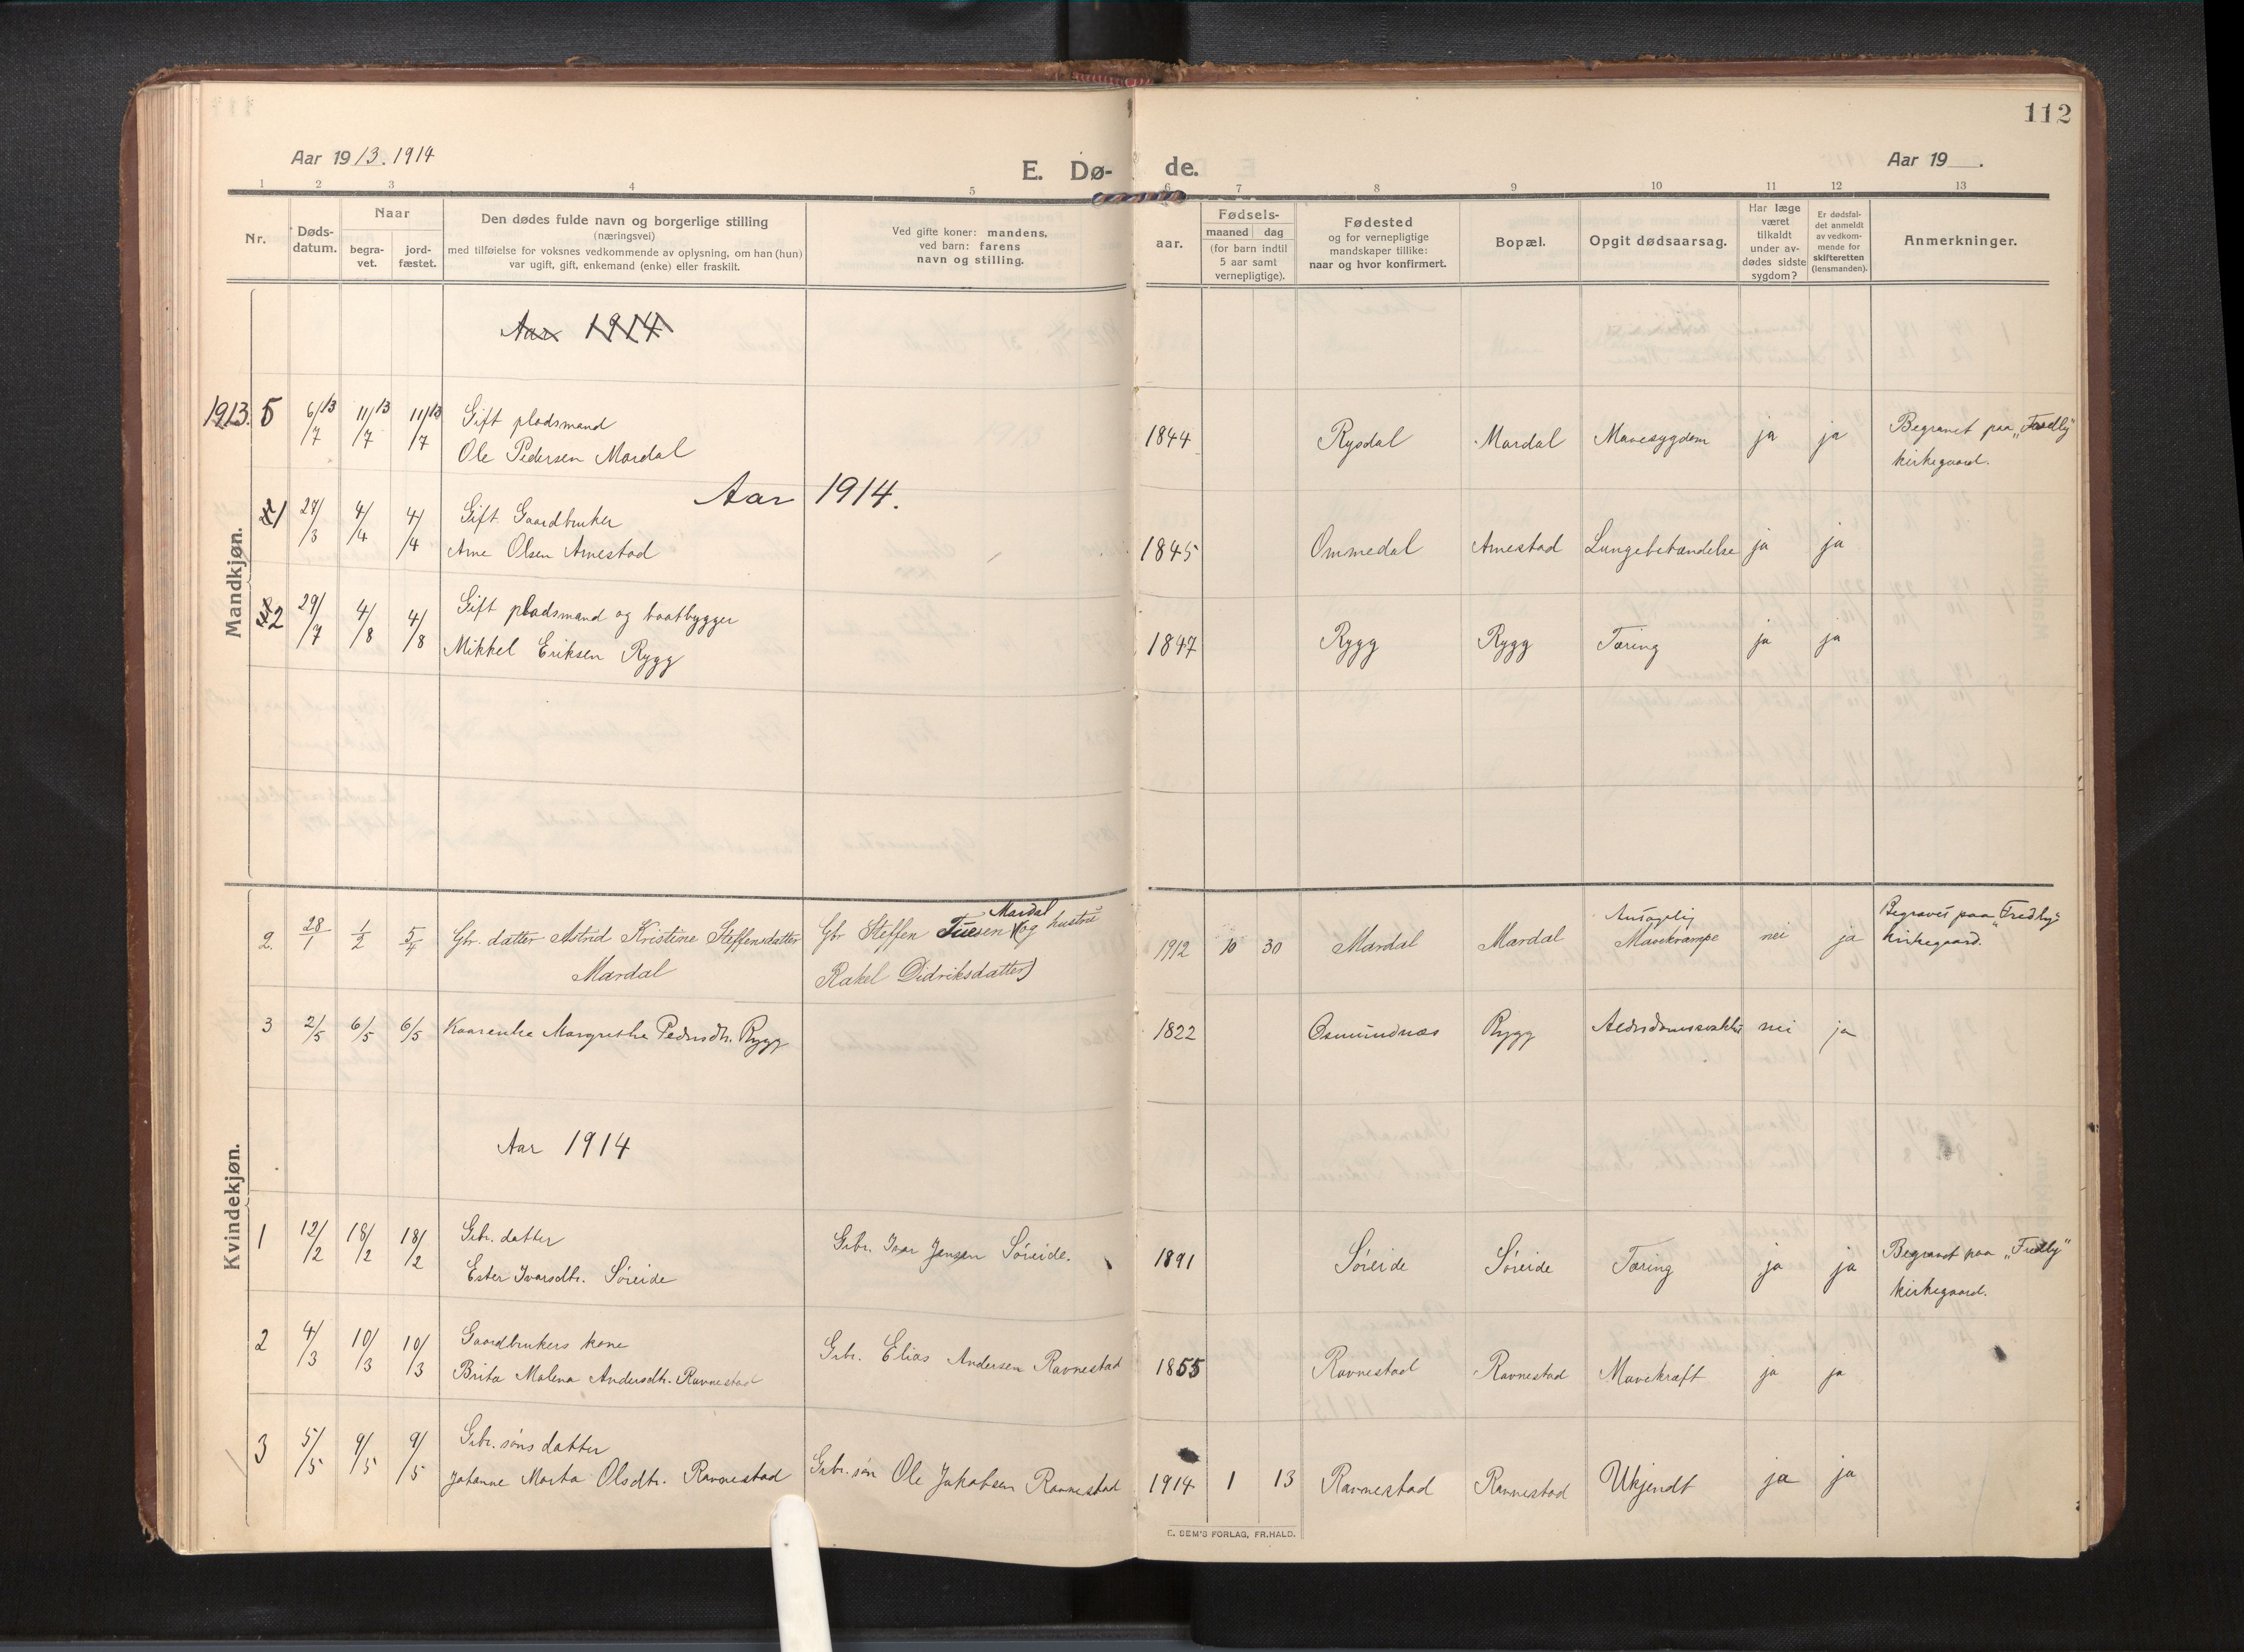 112
Aar 1913. 1914
E. Dø- de.
Aar 19 .
1 2 3 4 5 6 7 8 9 10 11 12 13
Nr.
Døds-
datum.
Naar
begra-
vet.
jord-
fæstet.
Den dødes fulde navn og borgerlige stilling
(næringsvei)
med tilføielse for voksnes vedkommende av oplysning, om han (hun)
var ugift, gift, enkemand (enke) eller fraskilt.
Ved gifte koner: mandens,
ved barn: farens
navn og stilling.
aar.
Fødsels-
maaned dag
(for barn indtil
5 aar samt
vernepligtige).
Fødested
og for vernepligtige
mandskaper tillike:
naar og hvor konfirmert.
Bopæl.
Opgit dødsaarsag.
Har læge
været
tilkaldt
under av-
dødes sidste
sygdom?
Er dødsfal-
det anmeldt
av vedkom-
mende for
skifteretten
(lensmanden).
Anmerkninger.
Mandkjøn.
Aar 1914
1913. 5 6/7 13 11/7 13 11/7 13 Gift pladsmand
Ole Pedersen Mardal
1844 Rysdal Mardal Mavesygdom ja ja Begravet paa „Fredly"
kirkegaard.
Aar 1914.
1 4/4 4/4 Gift Gaardbruker
Arne Olsen Arnestad
1845 Ommedal Arnestad Lungebetændelse ja ja
2 29/7 4/8 4/8 Gift pladsmand og baatbygger
Mikkel Eriksen Rygg
1847 Rygg Rygg Tæring ja ja
Kvindekjøn.
2. 28/1 1/2 5/4 Gbr. datter Astrid Kristine Steffensdatter
Mardal
Mardal
Gbr Steffen og hustru
Rakel Didriksdatter)
1912 10 30 Mardal Mardal Antagelig
Mavekrampe nei ja Begravet paa „Fredly"
kirkegaard.
3 2/5 6/5 6/5 Kaarenhe Margrethe Pedersdtr. Rygg
1822 Osmundnæs Rygg Alderdomssvakhet nei ja
Aar 1914
1 12/2 18/2 18/2 Grbr. datter
Ester Ivarsdtr. Søreide
Grbr. Ivar Jensen Søreide.
1891 Søreide Søreide Tæring ja ja Begravet paa „Fredly"
kirkegaard.
2 4/3 10/3 10/3 Gaardbrukers kone
Brita Malena Andersdtr. Ravnestad
Grbr. Elias Andersen Ravnestad
1855 Ravnestad Ravnestad Mavekræft ja ja
3 5/5 9/5 9/5 Grbr. søns datter
Johanne Marta Olsdtr. Ravnestad
Grbr. søn Ole Jakobsen Ravnestad
1914 1 13 Ravnestad Ravnestad Ukjendt ja ja
E. SEM'S FORLAG, FR.HALD.